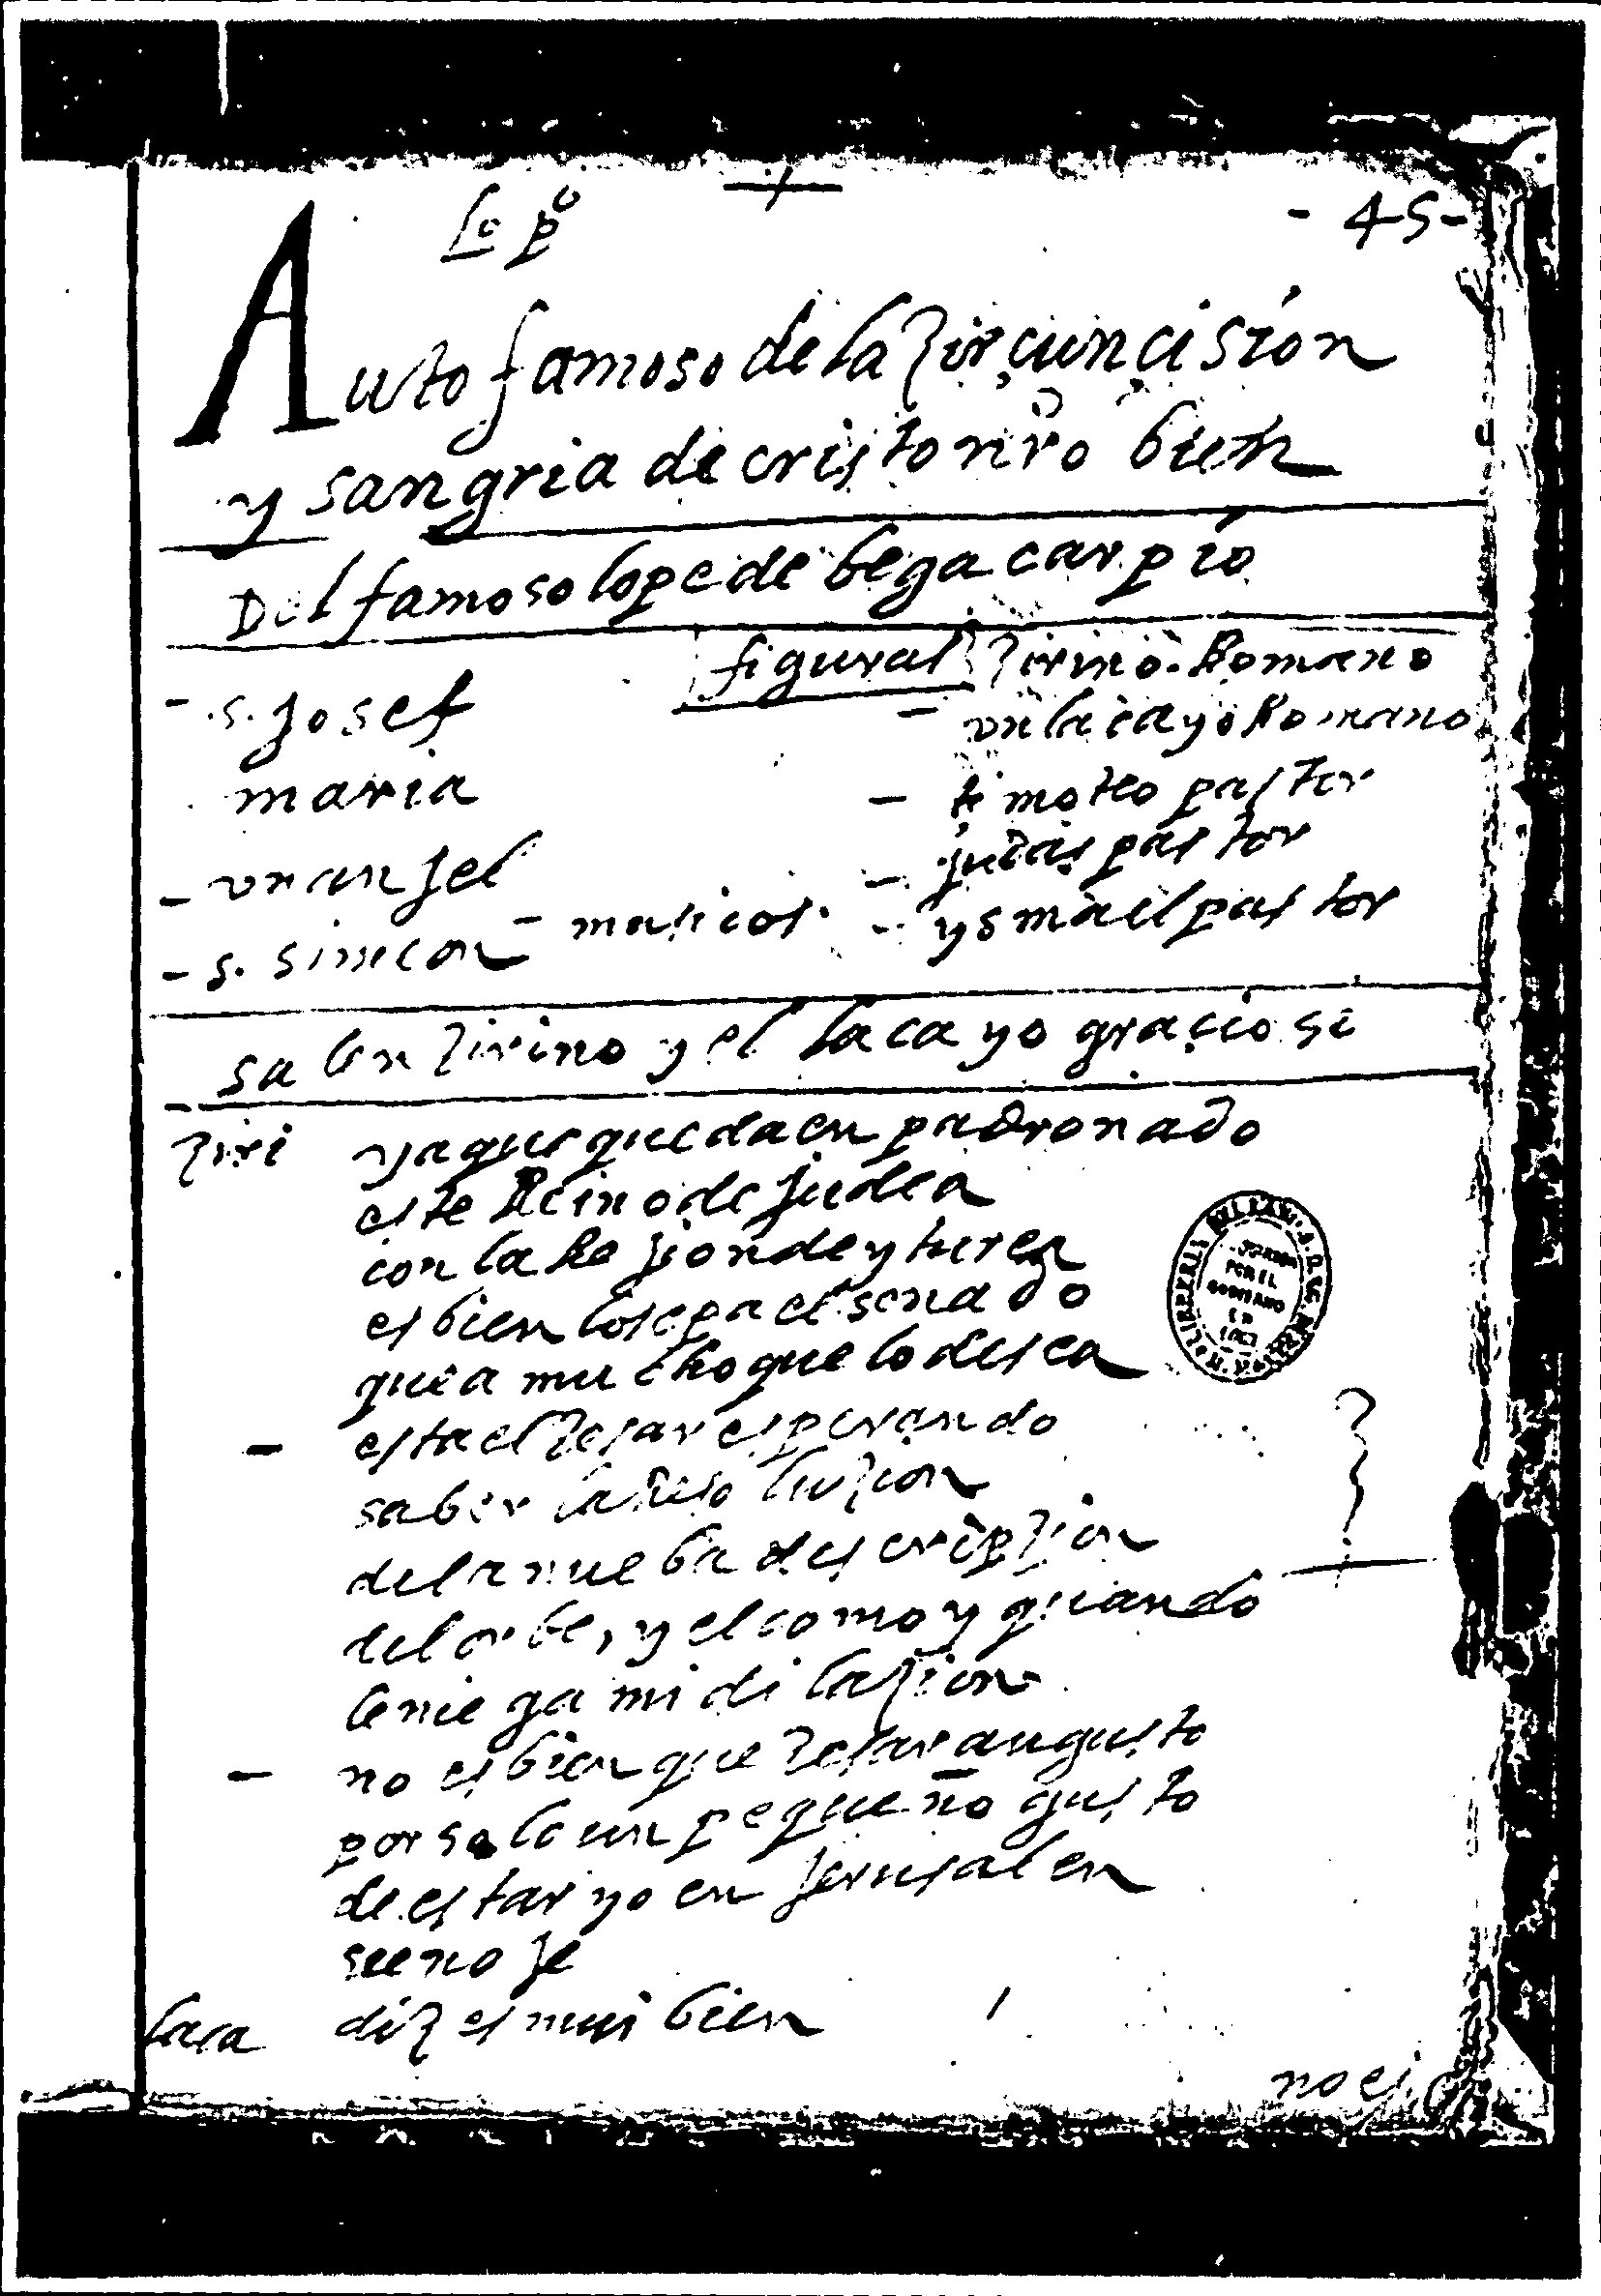 Lo pº
- 45 -
Auto famoso de la Zircuncision
y sangria de cristo nr̃o bien
Del famoso lope de bega carpio
figuras
- .s. Josef
maria
- un anjel
- s. simeon - musicos
Zirino. Romano
- un lacayo Romano
- timoteo pastor
- judas pastor
- ysmael pastor
salen Zirino y el lacayo gracioso
Ziri ya que queda enpadronado
este Reino de Judea
con la Rejion de yturea
es bien lo sepa el senado
que a mucho que lo desea
- esta el Zesar esperando
saber la Resoluzion
de la nueba descripzion
del orbe, y el como y quando
le niega mi dilazion
- no es bien que Zesar augusto
por solo un pequeño gusto
de estar yo en Jerusalen
se enoje
laca diz es mui bien
no es